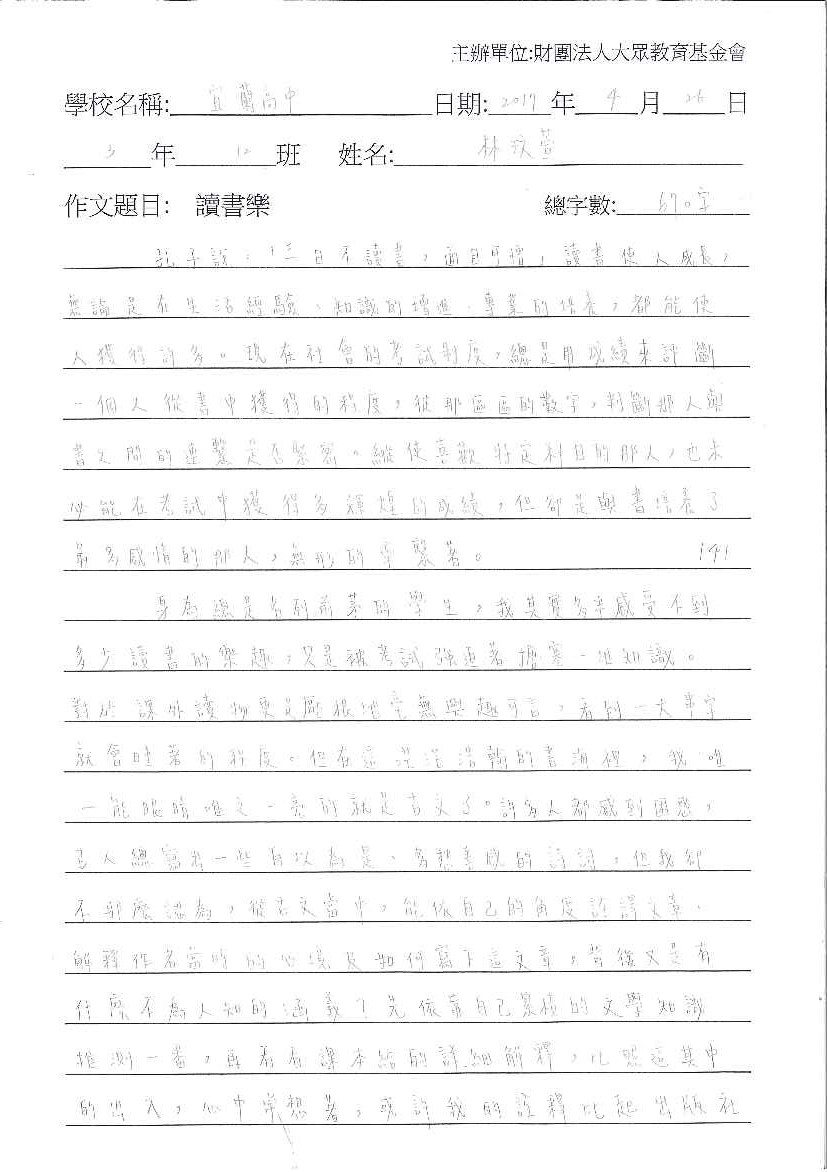 主辦單位:財團法人大眾教育基金會
學校名稱: 宜蘭高中 日期: 2017 年 4 月 26 日
3 年 12 班 姓名: 林玟萱
作文題目: 讀書樂 總字數: 670字
孔子說:「三日不讀書,面目可憎」讀書使人成長,
無論是在生活經驗、知識的增進、專業的培養,都能使
人獲得許多。現在社會的考試制度,總是用成績來評斷
一個人從書中獲得的程度,從那區區的數字,判斷那人與
書之間的連繫是否緊密。縱使喜歡特定科目的那人,也未
必能在考試中獲得多輝煌的成績,但卻是與書培養了
最多感情的那人,無形的牽繫著。 141
身為總是名列前茅的學生,我其實多半感受不到
多少讀書的樂趣,只是被考試強迫著擠塞一堆知識。
對於課外讀物更是壓根地毫無興趣可言,看到一大串字
就會睡著的程度。但在這浩浩翰的書海裡,我唯
一能眼睛唯之一亮的就是古文了。許多人都感到困惑,
古人總寫出一些自以為是、多愁善感的詩詞,但我卻
不那麼認為,從古文當中,能依自己的角度詮譯文章、
解釋作者當時的心境及如何寫下這文章,背後又是有
什麼不為人知的涵義?先依靠自己累積的文學知識
推測一番,再看看課本給的詳細解釋,比照這其中
的出入,心中常想著,或許我的詮釋比起出版社